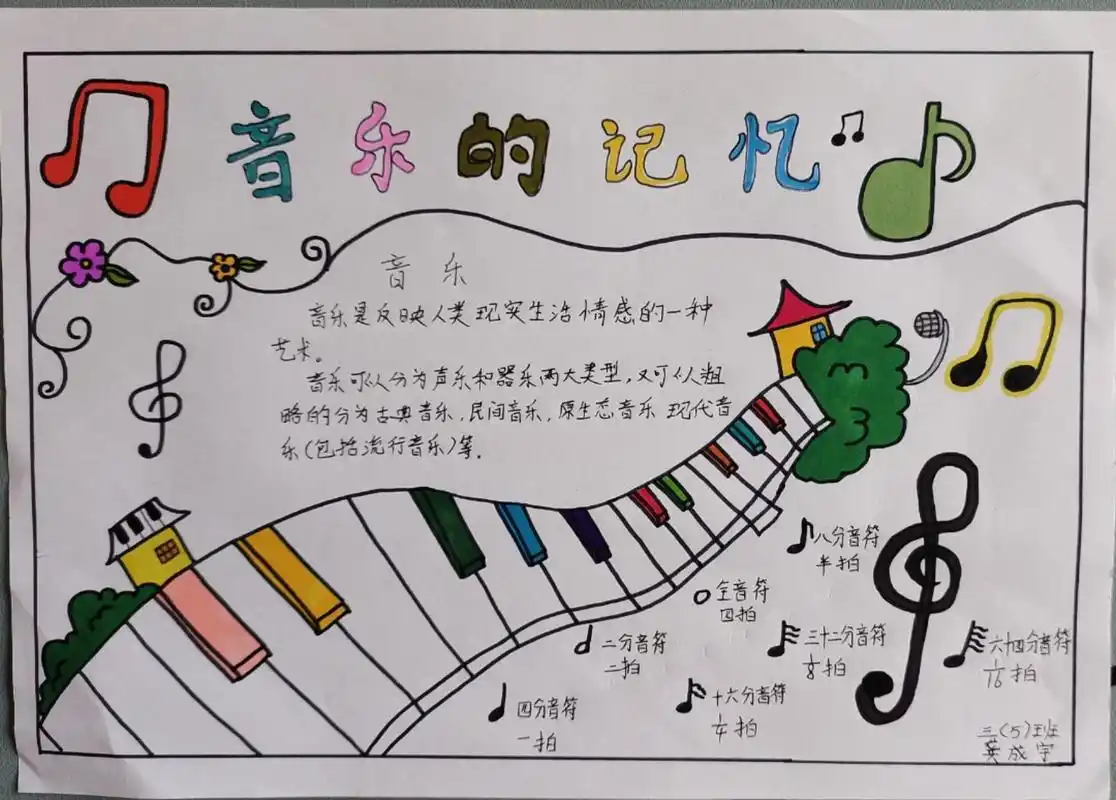 音乐的记忆
音乐
音乐是反映人类现实生活情感的一种
艺术。
音乐可以分为声乐和器乐两大类型,又可以粗
略的分为古典音乐.民间音乐.原生态音乐 现代音
乐(包括流行音乐)等.
八分音符
半拍
全音符
四拍
二分音符
二拍
三十二分音符
1/8拍
六十四分音符
1/16拍
四分音符
一拍
十六分音符
1/4拍
三(5)班
龚成宇